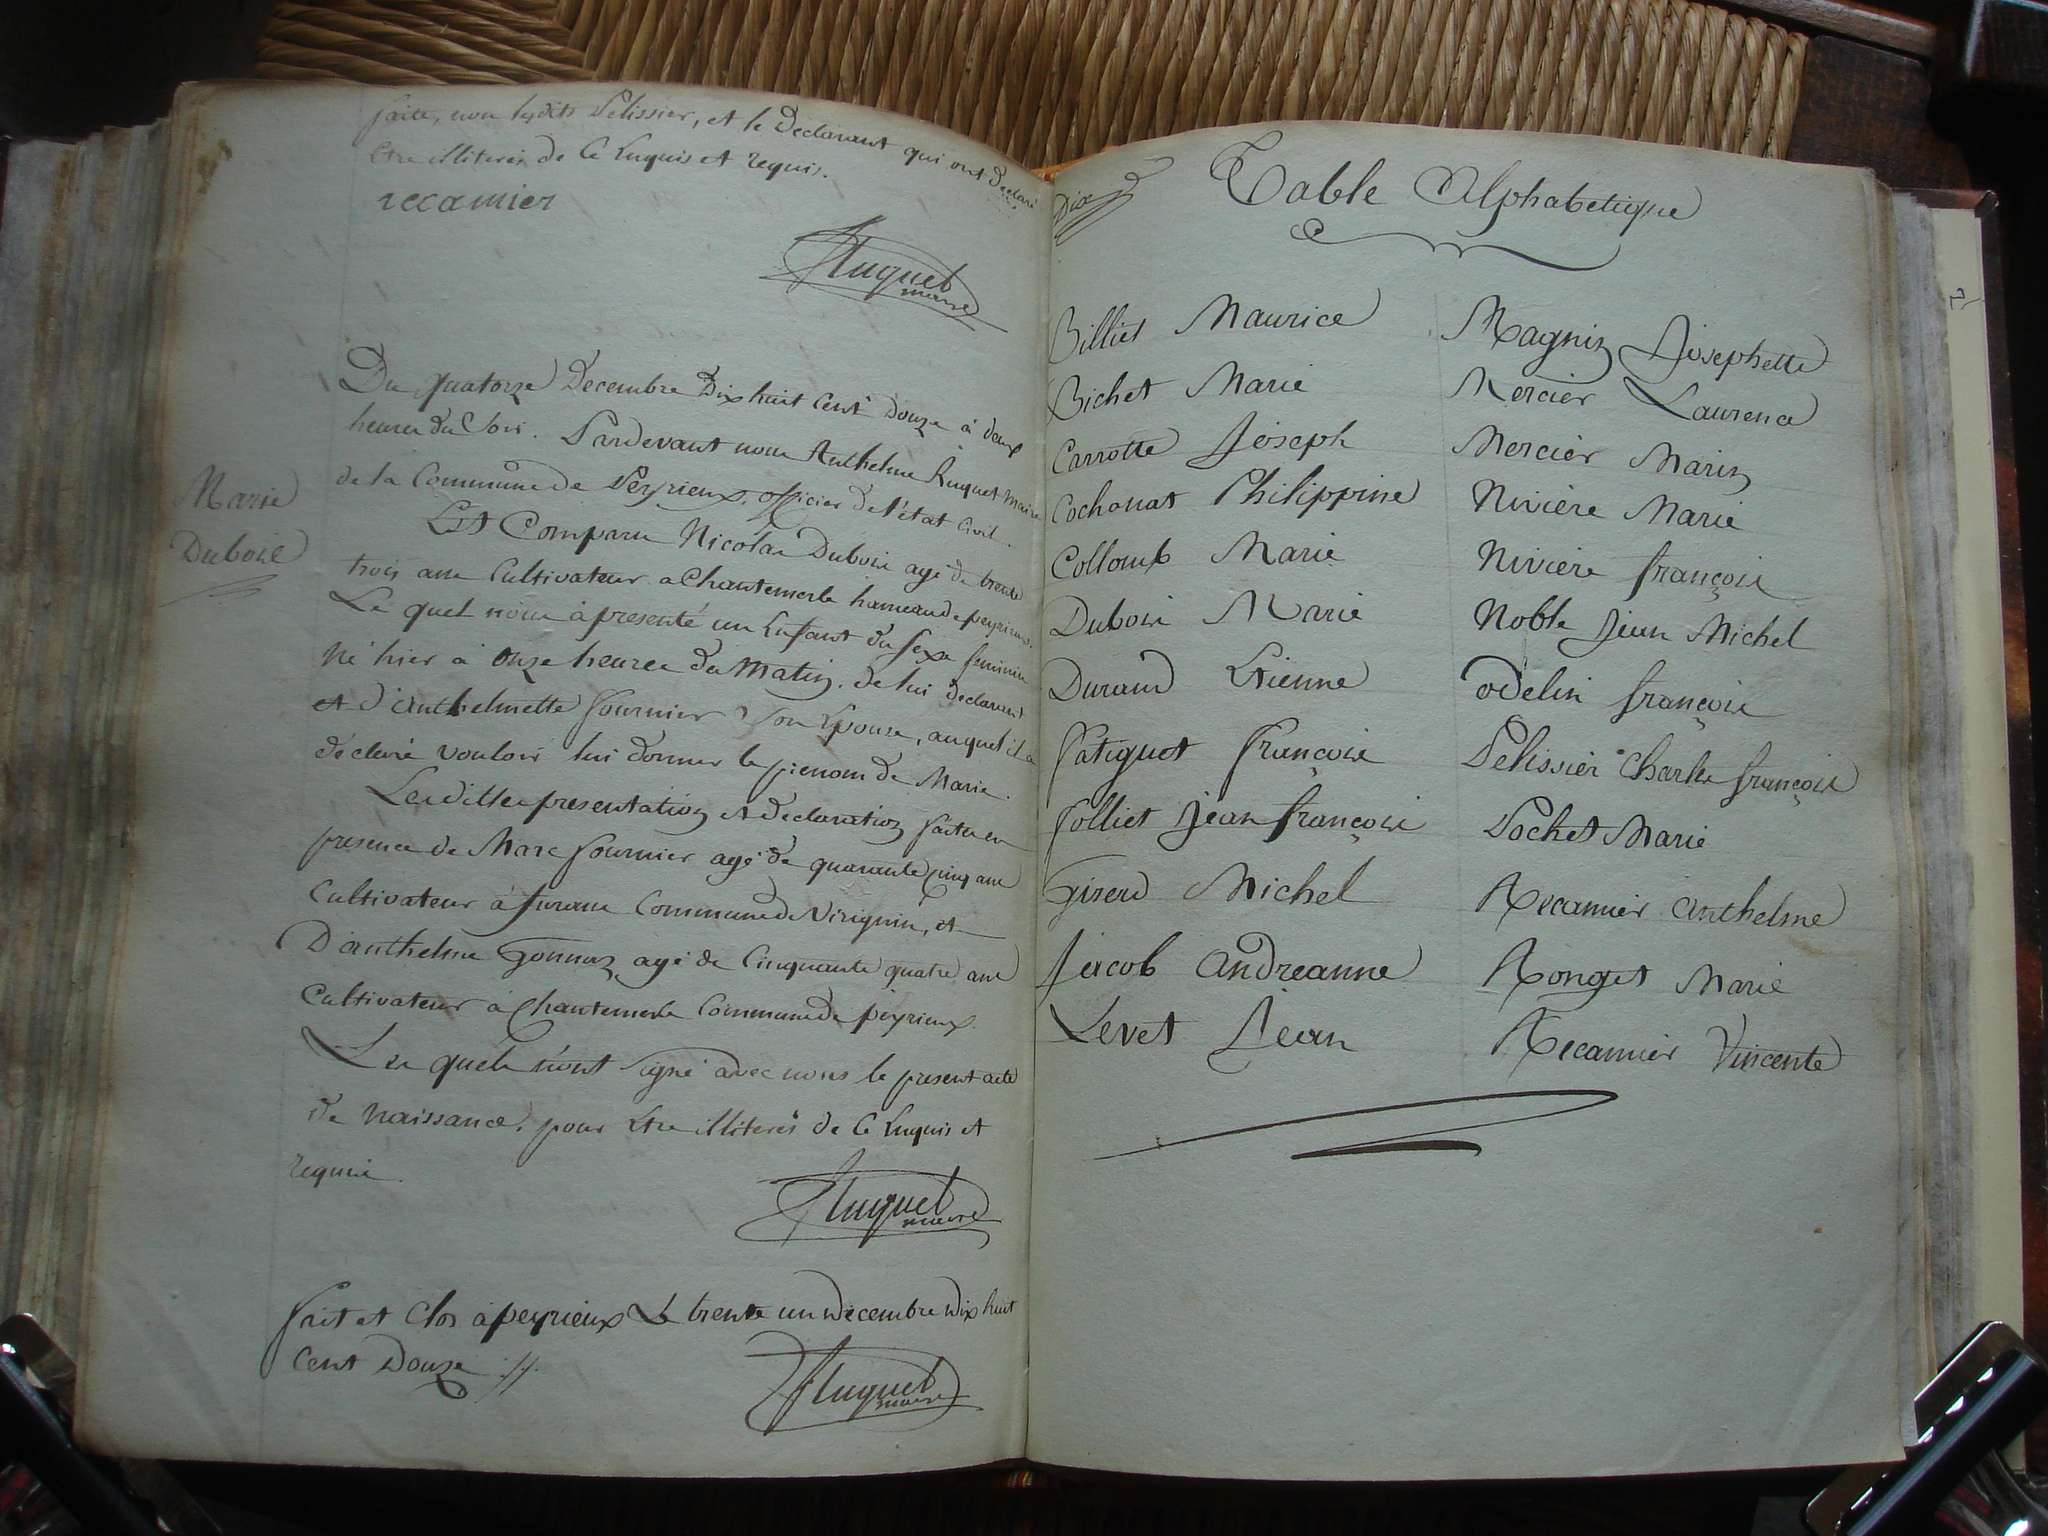 faite, non lesdits Pelissier, et le declarant qui ont declaré
Etre illiterés de Ce Enquis et requis.
recamier
Ruquet
maire
Du quatorze Decembre Dix huit Cent Douze à deux
heures du Soir. Pardevant nous Anthelme Ruquet maire
de la Commune de Peyrieux, officier de l'état Civil.
Est Comparu Nicolas Dubois agé de trente
trois ans Cultivateur a Chantemerle hameau de peyrieux.
Le quel nous à presenté un Enfant du Sexe feminin
Né hier à onze heures du Matin. de lui declarant
et d'Anthelmette fournier Son Epouse, auquel il a
déclaré vouloir lui donner le prenom de Marie.
Marie
Dubois
Lesdittes presentation et declaration faites en
presence de Marc fournier agé de quarante cinq ans
Cultivateur à furans Commune de Virignin, et
D'anthelme Gonnaz agé de Cinquante quatre ans
Cultivateur à Chantemerle Commune de peyrieux.
Les quels n'ont Signé avec nous le present acte
de Naissance. pour Etre illiterés de Ce Enquis et
requis.
Ruquet
maire
fait et Clos à peyrieux Le trente un Decembre Dix huit
Cent Douze
Ruquet
maire
Dix
Table Alphabetique
Billiet Maurice
Bichet Marie
Carrotte Joseph
Cochonat Philippine
Collomb Marie
Dubois Marie
Durand Etienne
Fatiguet françois
Folliet Jean françois
Girerd Michel
Jacob Andréanne
Levet Jean
Magnin Josephette
Mercier Laurence
Mercier Marin
Nivière Marie
Nivière françois
Noble Jean Michel
odelin françois
Pelissier Charles françois
Pochet Marie
Recamier Anthelme
Ronget Marie
Recamier Vincente